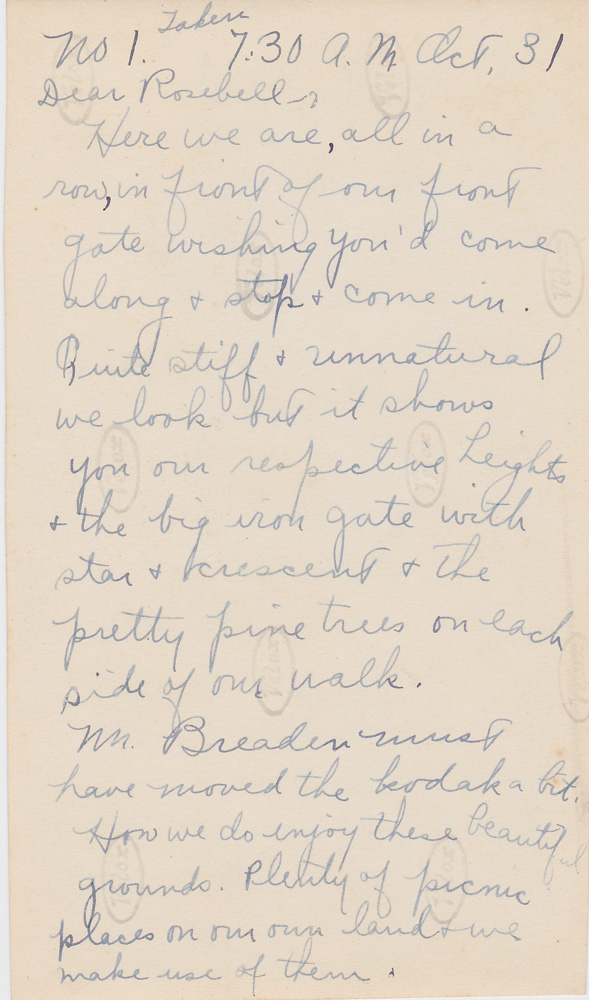 Taken
No 1. 7:30 A.M Oct. 31
Dear Rosebell -
Here we are, all in a
row, in front of our front
gate wishing you'd come
along & stop & come in.
Quite stiff & unnatural
we look but it shows
you our respective heights
& the big iron gate with
star & crescent & the
pretty pine trees on each
side of our walk.
Mr. Breaden must
have moved the kodak a bit.
How we do enjoy these beautiful
grounds. Plenty of picnic
places on our own land & we
make use of them.
Velox
Velox
Velox
Velox
Velox
Velox
Velox
Velox
Velox
Velox